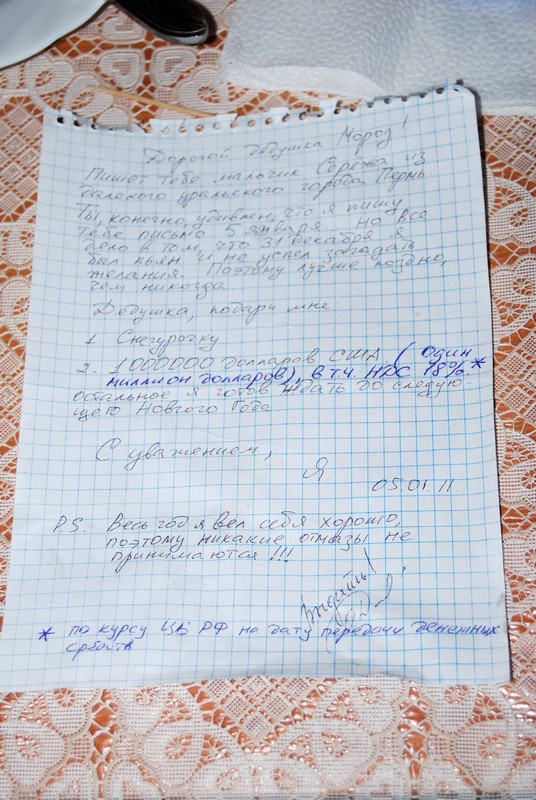 Дорогой дедушка Мороз!
Пишет тебе мальчик Серёжа из
далекого уральского города Пермь.
Ты, конечно, удивлен, что я пишу
тебе письмо 5 января... Но все
дело в том, что 31 декабря я
был пьян и не успел загадать
желания. Поэтому лучше поздно,
чем никогда
Дедушка, подари мне:
1. Снегурочку
2. 1000000 долларов США (один
миллион долларов), в т.ч. НДС 18%*
остальное я готов ждать до следую-
щего Нового Года
С уважением,
Я
05.01.11
P.S. Весь год я вел себя хорошо,
поэтому никакие отмазы не
принимаются!!!
* по курсу ЦБ РФ на дату передачи денежных
средств